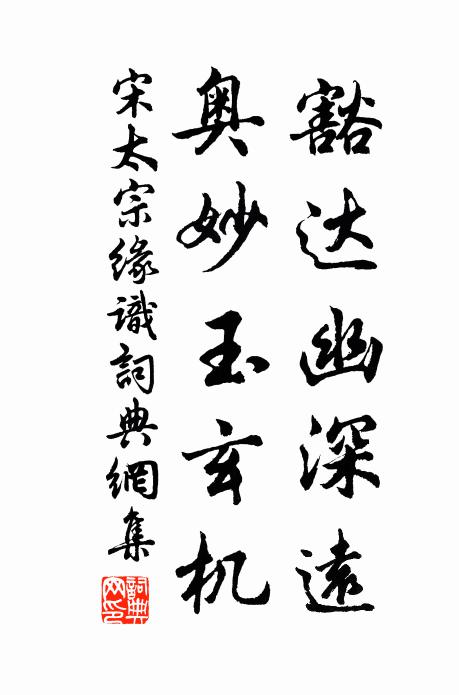 豁达幽深遠
奥妙玉玄机
宋太宗缘識詞典網集
詞典网印